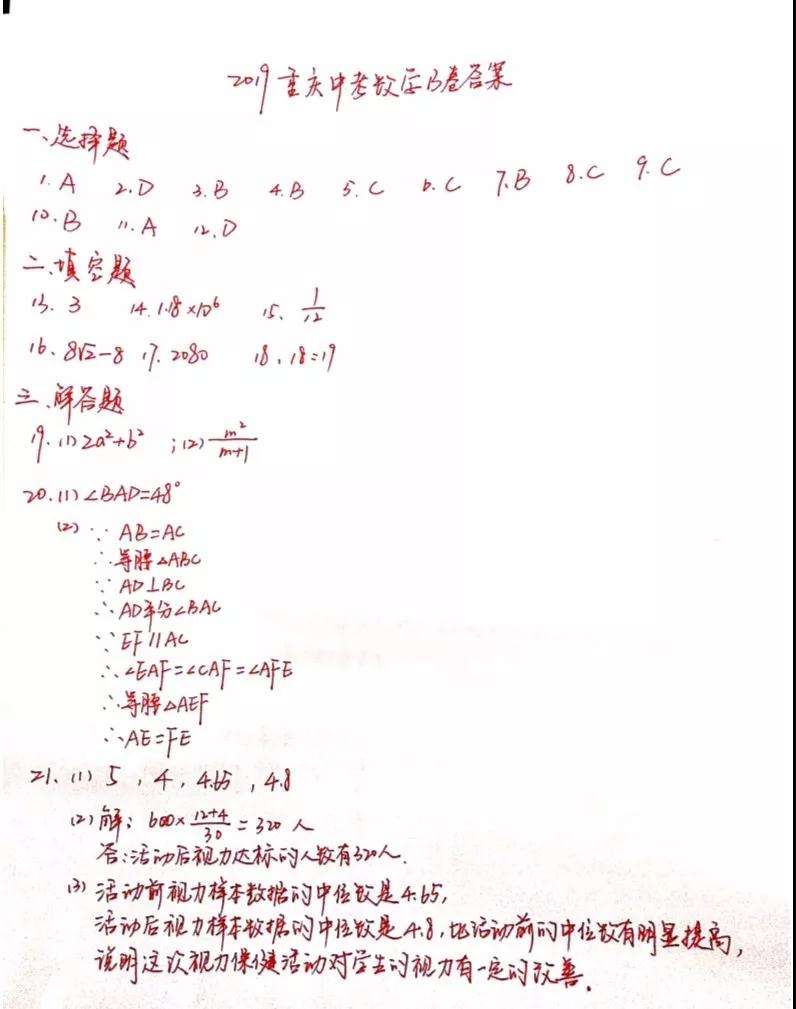 2019重庆中考数学B卷答案
一、选择题
1. A 2. D 3. B 4. B 5. C 6. C 7. B 8. C 9. C
10. B 11. A 12. D
二、填空题
13. 3 14. 1.18×10⁶ 15、 1/12
16、8√2-8 17. 2080 18、18:19
三、解答题
19. (1) 2a²+b² ; (2) m²/(m+1)
20. (1) ∠BAD=48°
(2) ∵ AB=AC
∴等腰△ABC
∵ AD⊥BC
∴AD平分∠BAC
∵EF∥AC
∴∠EAF=∠CAF=∠AFE
∴等腰△AEF
∴AE=FE
21、(1) 5 , 4 , 4.65 , 4.8
(2) 解: 600×(12+4)/30=320 人
答:活动后视力达标的人数有320人.
(3) 活动前视力样本数据的中位数是4.65,
活动后视力样本数据的中位数是4.8,比活动前的中位数有明显提高,
说明这次视力保健活动对学生的视力有一定的改善.